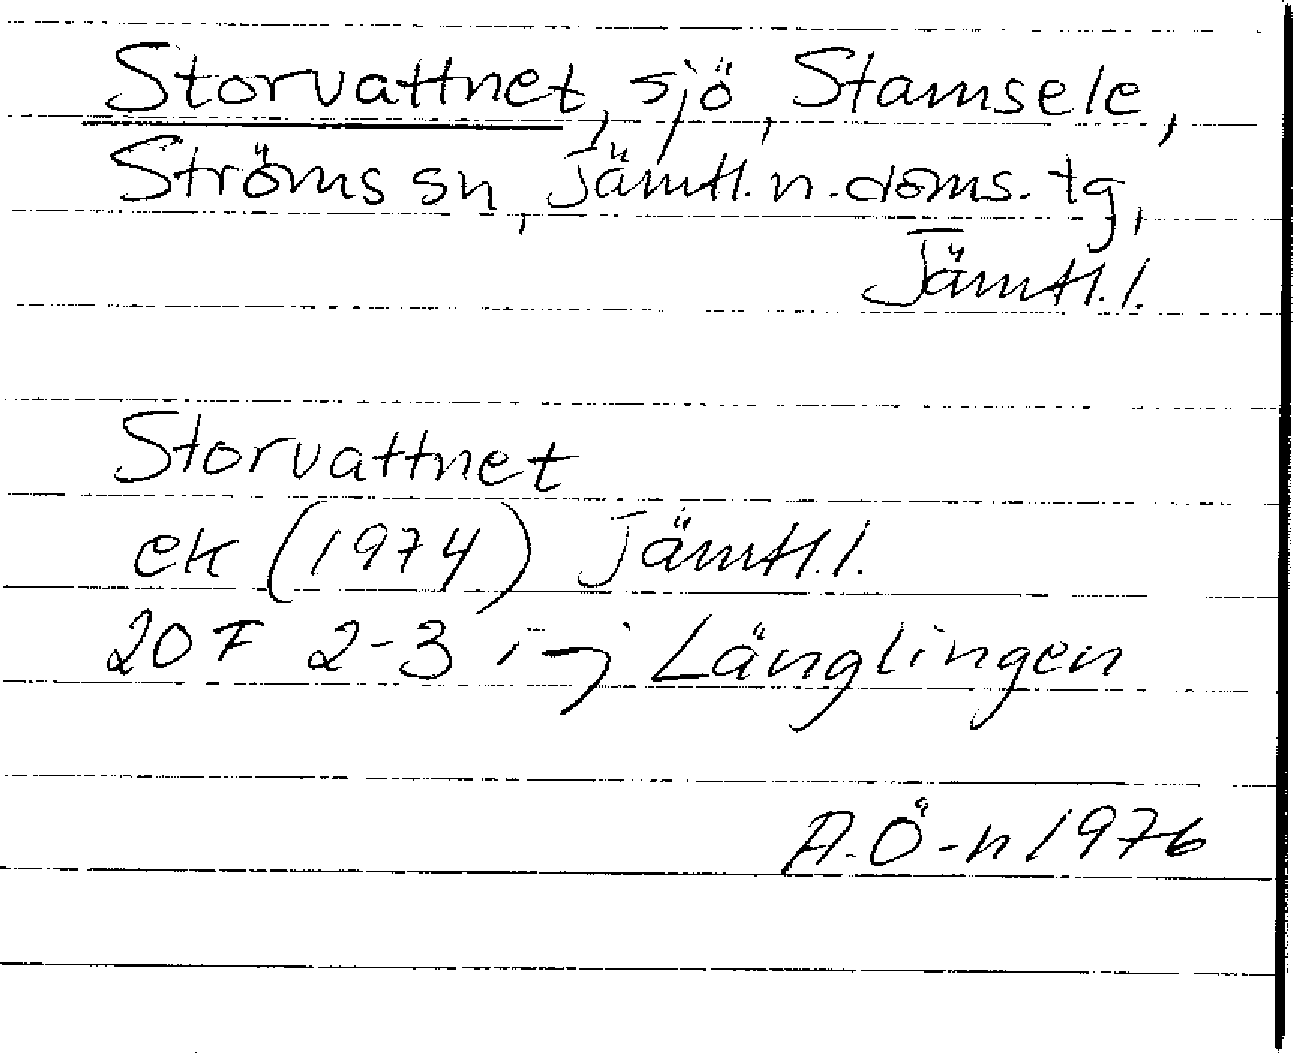 Storvattnet, sjö, Stamsele,
Ströms sn, Jämtl. n. doms. tg,
Jämtl. l.
Storvattnet
ek (1974) Jämtl. l.
20 F 2-3 i-j Länglingen
A. Ö-n 1976